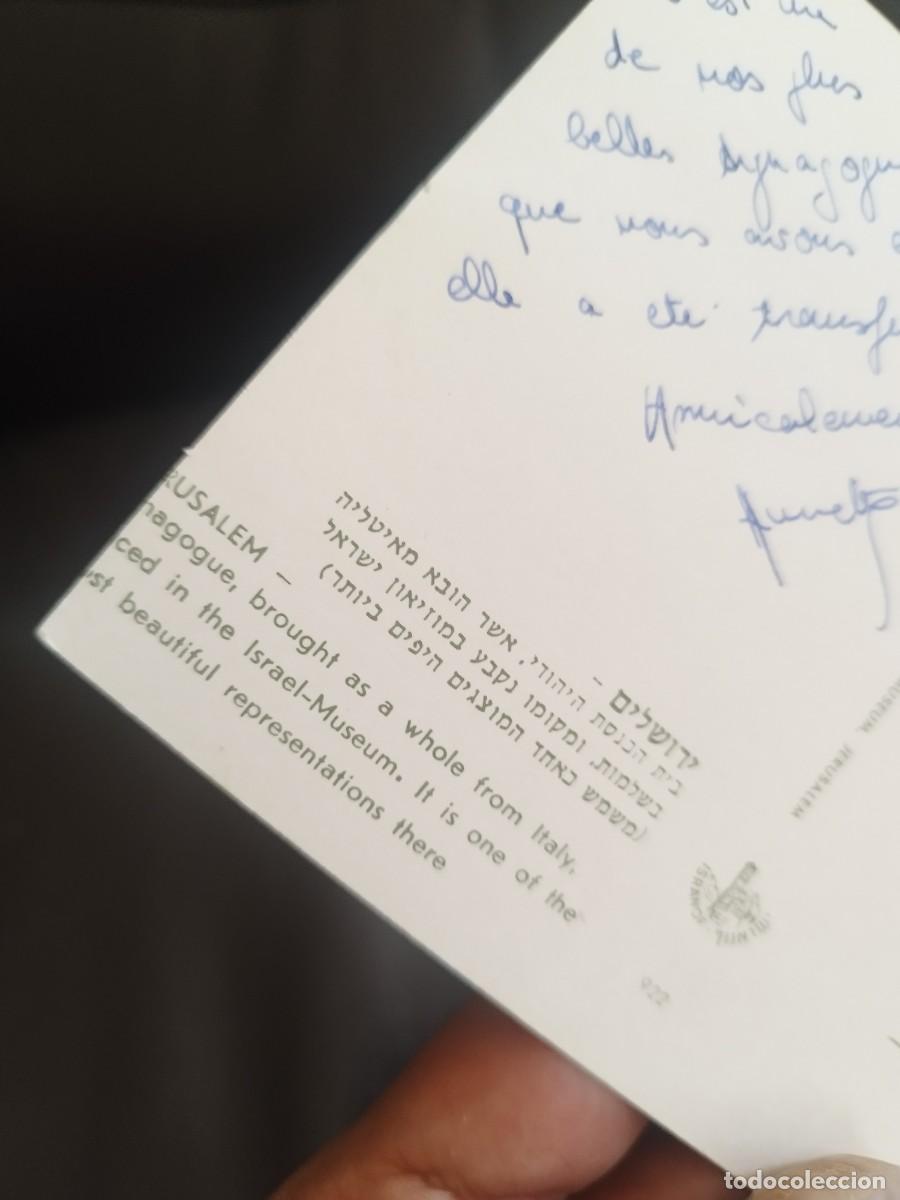 est une
de nos plus
belles synagogu
que nous avons
elle a été transfé
Amicaleme
ירושלים –
בית הכנסת היהודי, אשר הובא מאיטליה
בשלמות, ומקומו נקבע במוזיאון ישראל
(משמש כאחד המוצגים היפים ביותר)
RUSALEM –
nagogue, brought as a whole from Italy,
ced in the Israel-Museum. It is one of the
st beautiful representations there
JERUSALEM
922
todocoleccion